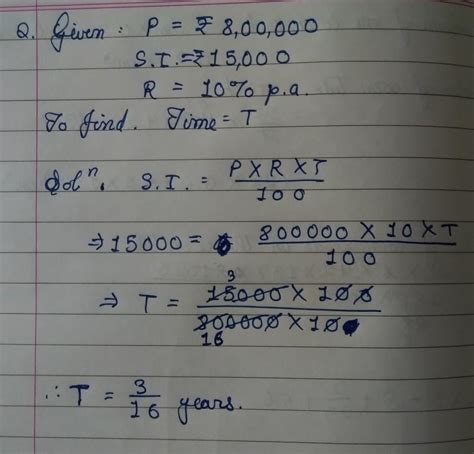 Q. Given : P = ₹ 8,00,000
S.I. = ₹ 15,000
R = 10% p.a.
To find. Time = T
Solⁿ. S.I. = P X R X T / 100
⇒ 15000 = 800000 X 10 X T / 100
3
⇒ T = 15000 X 100 / 800000 X 10
16
∴ T = 3/16 years.